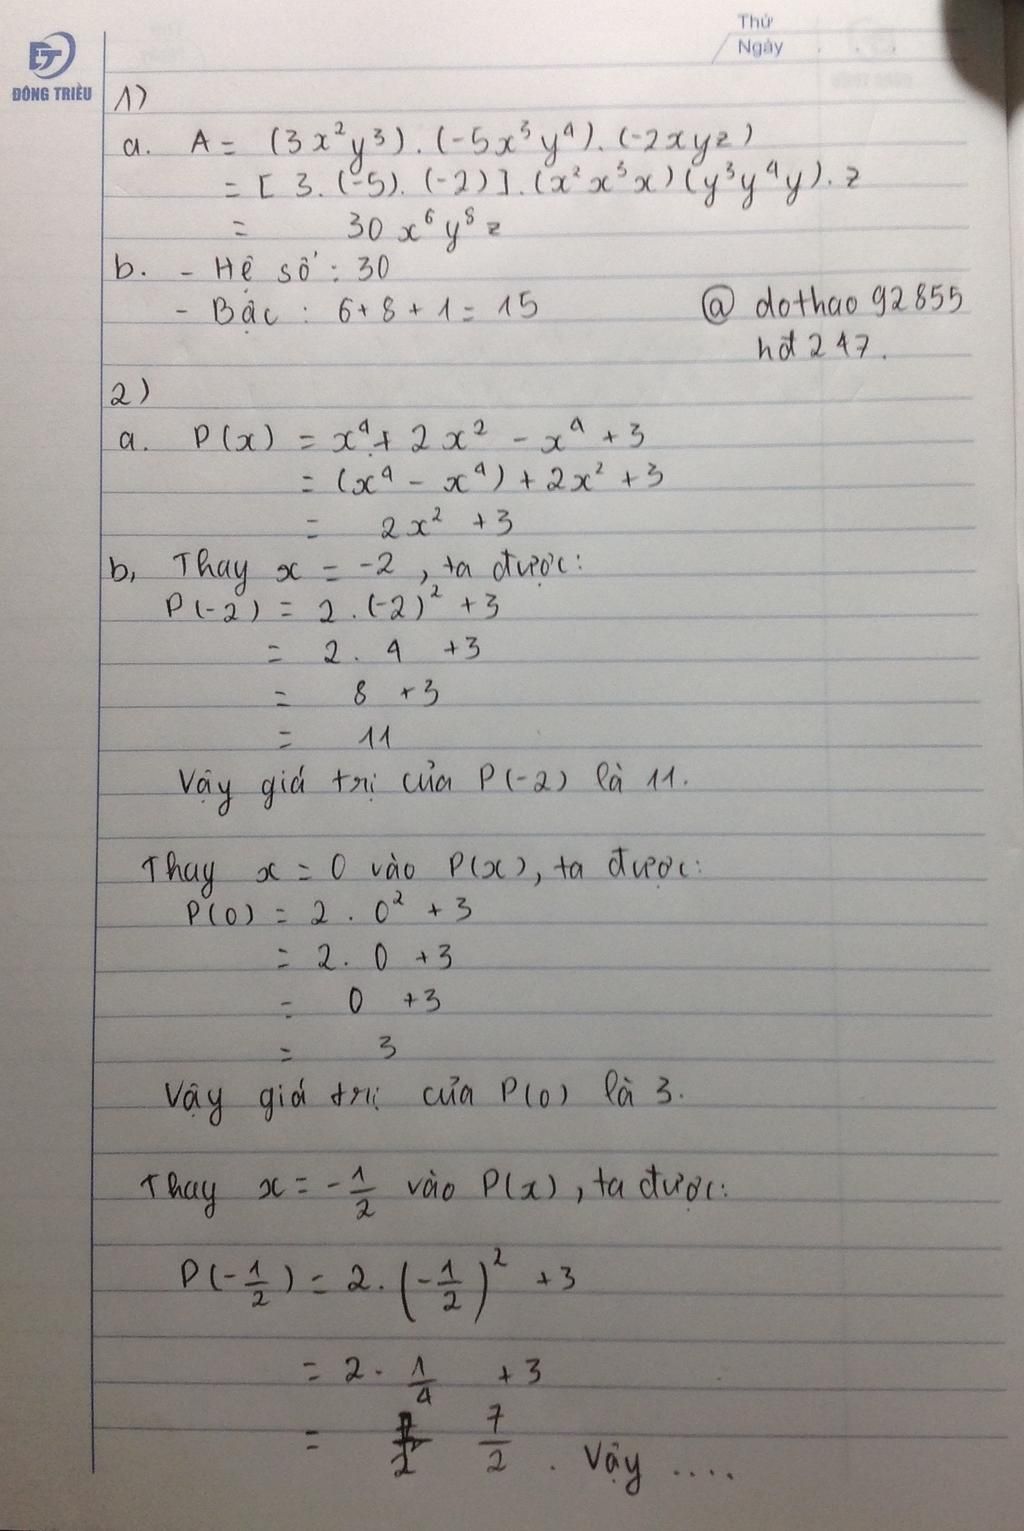 Thứ
Ngày
ĐÔNG TRIỀU
1)
a. A = (3x²y³).(-5x³y⁴).(-2xyz)
= [3.(-5).(-2)].(x²x³x)(y³y⁴y).z
= 30x⁶y⁸z
b. - Hệ số: 30
- Bậc: 6+8+1= 15
@ dothao92855
hđ247.
2)
a. P(x) = x⁴+ 2x² - x⁴ +3
= (x⁴ - x⁴) + 2x² +3
= 2x² +3
b, Thay x = -2, ta được:
P(-2) = 2.(-2)² +3
= 2. 4 +3
= 8 +3
= 11
Vậy giá trị của P(-2) là 11.
Thay x = 0 vào P(x), ta được:
P(0) = 2. 0² + 3
= 2. 0 +3
= 0 +3
= 3
Vậy giá trị của P(0) là 3.
Thay x = -1/2 vào P(x), ta được:
P(-1/2) = 2.(-1/2)² +3
= 2. 1/4 +3
= 7/2. Vậy ....